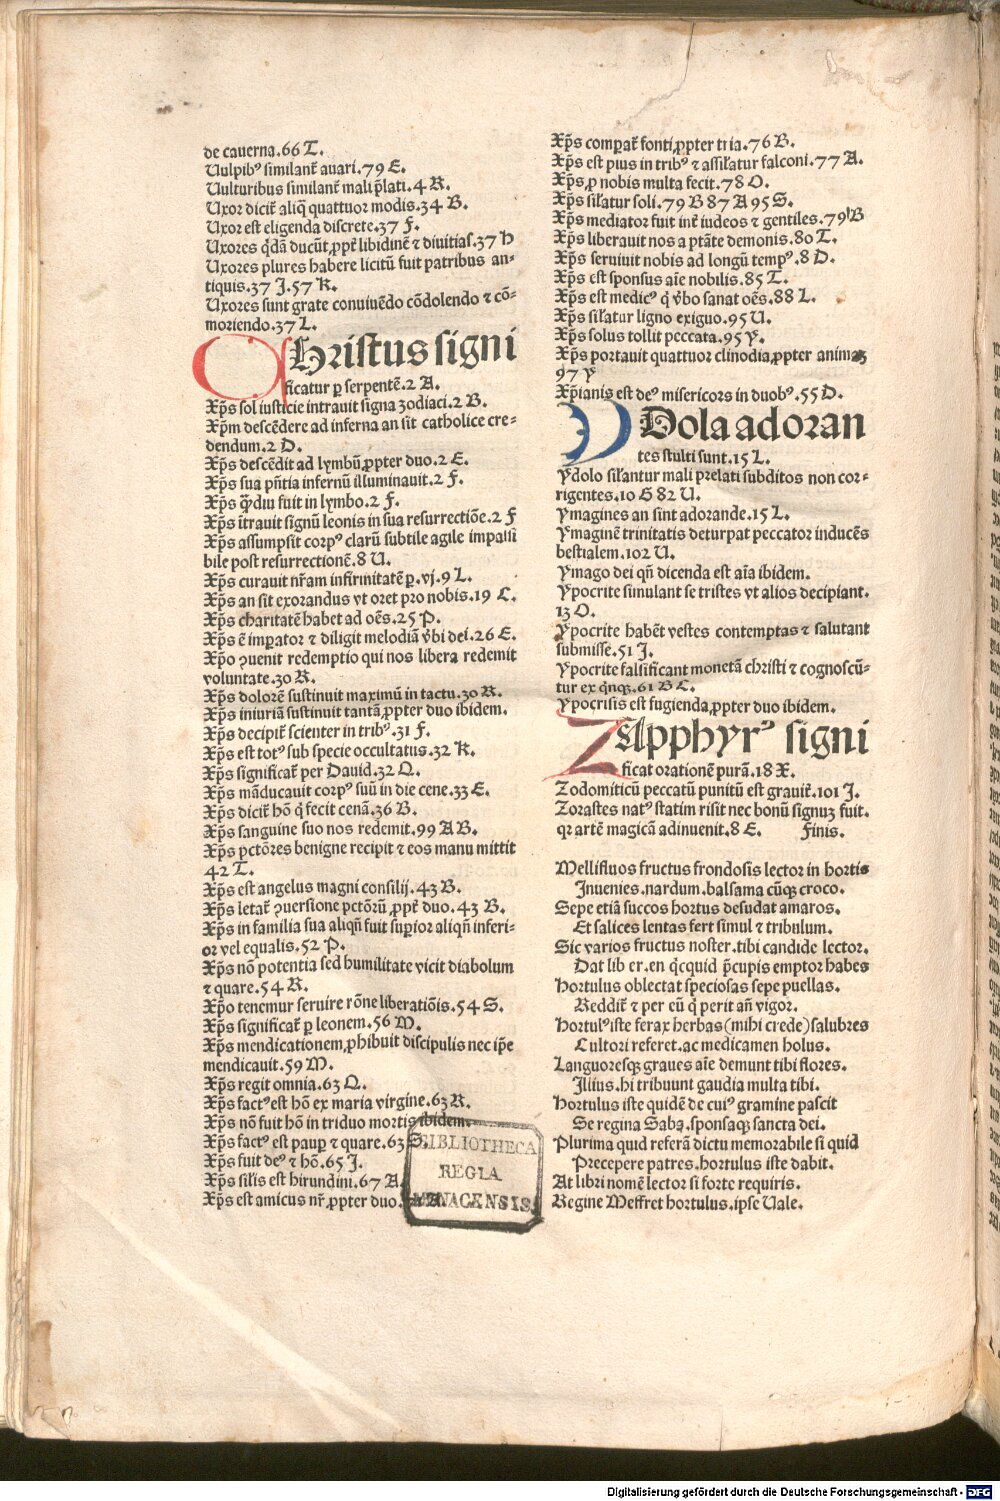 de cauerna.66 T.
Uulpibꝰ similant̄ auari.79 E.
Uulturibus similant̄ mali p̄lati.4 R.
Uxor dicit̄ aliq̄ quattuor modis.34 B.
Uxor est eligenda discrete.37 F.
Uxores q̄dā ducūt ꝓpt̄ libidinē ⁊ diuitias.37 H
Uxores plures habere licitū fuit patribus an-
tiquis.37 J.57 K.
Uxores sunt grate conuiuēdo cōdolendo ⁊ cō-
moriendo.37 L.
CHristus signi
ficatur ꝑ serpentē.2 A.
Xp̄s sol iusticie intrauit signa zodiaci.2 B.
Xp̄m descēdere ad inferna an sit catholice cre-
dendum.2 D.
Xp̄s descēdit ad lymbū ꝓpter duo.2 E.
Xp̄s sua pn̄tia infernū illuminauit.2 F.
Xp̄s q̄diu fuit in lymbo.2 F.
Xp̄s ītrauit signū leonis in sua resurrectiōe.2 F
Xp̄s assumpsit corpꝰ clarū subtile agile impassi
bile post resurrectionē.8 U.
Xp̄s curauit nr̄am infirmitatē ꝑ.vj.9 L.
Xp̄s an sit exorandus vt oret pro nobis.19 C.
Xp̄s charitatē habet ad oēs.25 P.
Xp̄s ē imꝑator ⁊ diligit melodiā v̄bi dei.26 E.
Xp̄o ꝯuenit redemptio qui nos libera redemit
voluntate.30 R.
Xp̄s dolorē sustinuit maximū in tactu.30 R.
Xp̄s iniuriā sustinuit tantā ꝓpter duo ibidem.
Xp̄s decipit̄ scienter in tribꝰ.31 F.
Xp̄s est totꝰ sub specie occultatus.32 K.
Xp̄s significat̄ per Dauid.32 Q.
Xp̄s māducauit corpꝰ suū in die cene.33 E.
Xp̄s dicit̄ hō q̄ fecit cenā.36 B.
Xp̄s sanguine suo nos redemit.99 A B.
Xp̄s pctōres benigne recipit ⁊ eos manu mittit
42 T.
Xp̄s est angelus magni consilij.43 B.
Xp̄s letat̄ ꝯuersione pctōrū ꝓpt̄ duo.43 B.
Xp̄s in familia sua aliqn̄ fuit suꝑior aliqn̄ inferi-
or vel equalis.52 P.
Xp̄s nō potentia sed humilitate vicit diabolum
⁊ quare.54 R.
Xp̄o tenemur seruire rōne liberatiōis.54 S.
Xp̄s significat̄ ꝑ leonem.56 M.
Xp̄s mendicationem ꝓhibuit discipulis nec ip̄e
mendicauit.59 M.
Xp̄s regit omnia.63 Q.
Xp̄s factꝰ est hō ex maria virgine.63 R.
Xp̄s nō fuit hō in triduo mortis ibidem.
Xp̄s factꝰ est pauꝑ ⁊ quare.63 S.
Xp̄s fuit deꝰ ⁊ hō.65 J.
Xp̄s sil̄is est hirundini.67 A.
Xp̄s est amicus nr̄ ꝓpter duo.
BIBLIOTHECA
REGIA
MONACENSIS
Xp̄s comꝑat̄ fonti ꝓpter tria.76 B.
Xp̄s est pius in tribꝰ ⁊ assil̄atur falconi.77 A.
Xp̄s ꝓ nobis multa fecit.78 O.
Xp̄s sil̄atur soli.79 B 87 A 95 S.
Xp̄s mediator fuit int̄ iudeos ⁊ gentiles.79 B
Xp̄s liberauit nos a ptāte demonis.80 T.
Xp̄s seruiuit nobis ad longū tempꝰ.8 D.
Xp̄s est sponsus aīe nobilis.85 T.
Xp̄s est medicꝰ q̄ v̄bo sanat oēs.88 L.
Xp̄s sil̄atur ligno exiguo.95 U.
Xp̄s solus tollit peccata.95 Y.
Xp̄s portauit quattuor clinodia ꝓpter animaꝝ
97 Y
Xp̄ianis est deꝰ misericors in duobꝰ.55 D.
YDola adoran
tes stulti sunt.15 L.
Ydolo sil̄antur mali prelati subditos non cor-
rigentes.10 G 82 U.
Ymagines an sint adorande.15 L.
Ymaginē trinitatis deturpat peccator inducēs
bestialem.102 U.
Ymago dei qn̄ dicenda est aīa ibidem.
Ypocrite simulant se tristes vt alios decipiant.
13 O.
Ypocrite habēt vestes contemptas ⁊ salutant
submisse.51 J.
Ypocrite falsificant monetā christi ⁊ cognoscū-
tur ex q̄nqꝫ.61 B C.
Ypocrisis est fugienda ꝓpter duo ibidem.
ZApphyrꝰ signi
ficat orationē purā.18 X.
Zodomiticū peccatū punitū est grauit̄.101 J.
Zorastes natꝰ statim risit nec bonū signuꝫ fuit.
qꝛ artē magicā adinuenit.8 E. Finis.
Mellifluos fructus frondosis lector in hortis
Inuenies.nardum.balsama cūqꝫ croco.
Sepe etiā succos hortus desudat amaros.
Et salices lentas fert simul ⁊ tribulum.
Sic varios fructus noster.tibi candide lector.
Dat liber.en q̄cquid p̄cupis emptor habes
Hortulus oblectat speciosas sepe puellas.
Reddit̄ ⁊ per eū q̄ perit an̄ vigor.
Hortulꝰ iste ferax herbas (mihi crede) salubres
Cultori referet.ac medicamen holus.
Languoresqꝫ graues aīe demunt tibi flores.
Illius.hi tribuunt gaudia multa tibi.
Hortulus iste quidē de cuiꝰ gramine pascit
Se regina Saba.sponsaqꝫ sancta dei.
Plurima quid referā dictu memorabile si quid
Precepere patres.hortulus iste dabit.
At libri nomē lector si forte requiris.
Regine Meffret hortulus.ipse Uale.
Digitalisierung gefördert durch die Deutsche Forschungsgemeinschaft - DFG